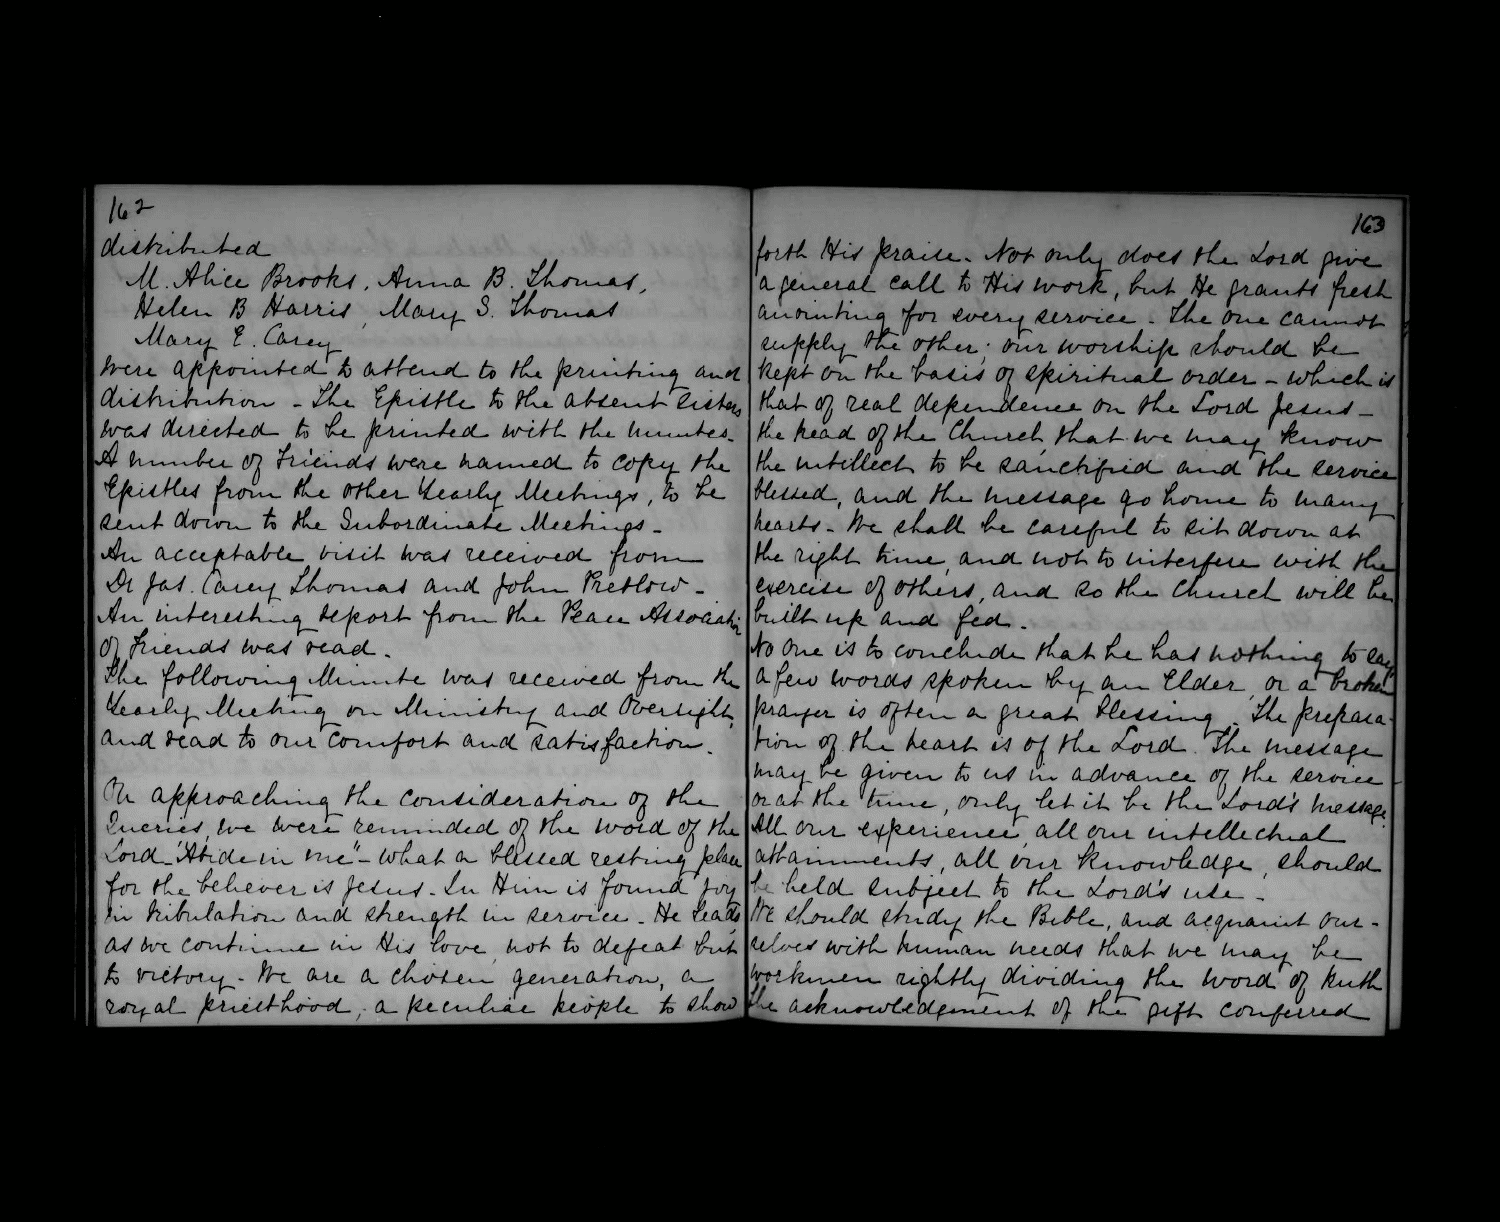 162
distributed
M. Alice Brooks, Anna B. Thomas,
Helen B Harris, Mary S. Thomas
Mary E. Carey
were appointed to attend to the printing and
distribution - The Epistle to the absent sisters
was directed to be printed with the minutes.
A number of Friends were named to copy the
Epistles from the other Yearly Meetings, to be
sent down to the Subordinate Meetings -
An acceptable visit was received from
Dr Jas. Carey Thomas and John Pretlow -
An interesting report from the Peace Association
of Friends was read.
The following Minute was received from the
Yearly Meeting on Ministry and Oversight,
and read to our comfort and satisfaction.
On approaching the consideration of the
Queries, we were reminded of the word of the
Lord - "Abide in me" - what a blessed resting place
for the believer is Jesus - In Him is found joy
in tribulation and strength in service - He leads,
as we continue in His love, not to defeat but
to victory - We are a chosen generation, a
royal priesthood, a peculiar people to show
163
forth His praise - Not only does the Lord give
a general call to His work, but He grants fresh
anointing for every service - The one cannot
supply the other; our worship should be
kept on the basis of spiritual order - which is
that of real dependence on the Lord Jesus -
the head of the Church, that we may know
the intellect to be sanctified and the service
blessed, and the message go home to many
hearts - We shall be careful to sit down at
the right time, and not to interfere with the
exercise of others, and so the Church will be
built up and fed.
No one is to conclude that he has nothing to say,
a few words spoken by an Elder, or a broken
prayer is often a great blessing. The prepara-
tion of the heart is of the Lord. The message
may be given to us in advance of the service
or at the time, only let it be the Lord's message.
All our experience, all our intellectual
attainments, all our knowledge, should
be held subject to the Lord's use -
We should study the Bible, and acquaint our-
selves with human needs that we may be
workmen rightly dividing the word of truth
The acknowledgment of the gift conferred